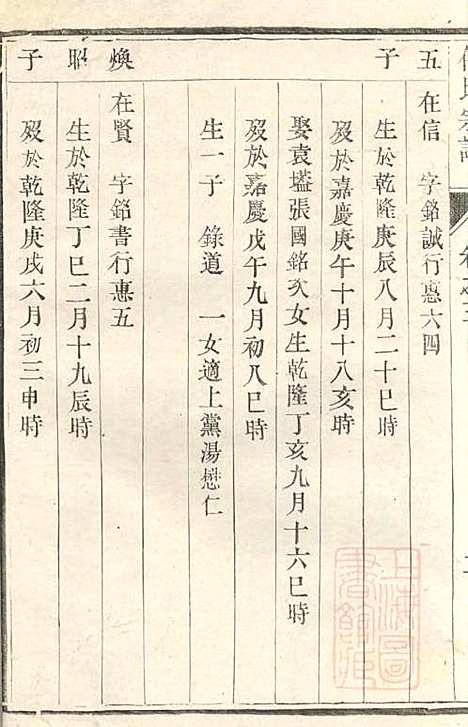 五子
在信 字銘誠行惠六四
生於乾隆庚辰八月二十巳時
歿於嘉慶庚午十月十八亥時
娶袁塩張國銘次女生乾隆丁亥九月十六巳時
歿於嘉慶戊午九月初八巳時
生一子 錄道 一女適上黨湯懋仁
煥昭子
在賢 字銘書行惠五
生於乾隆丁巳二月十九辰時
歿於乾隆庚戌六月初三申時
上海圖書館藏